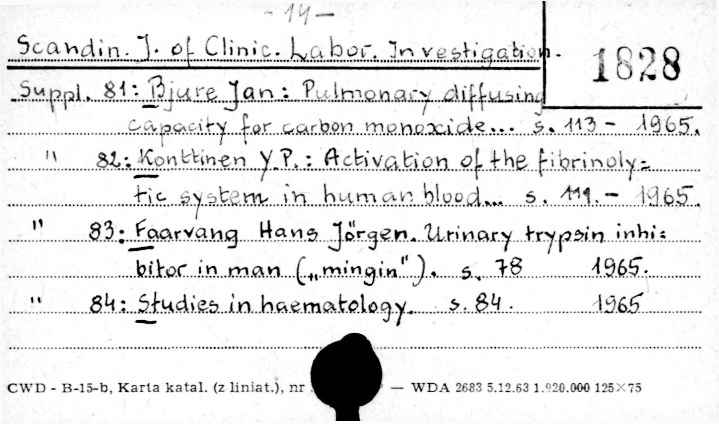 - 14 -
Scandin. J. of Clinic. Labor. Investigation.
1828
Suppl. 81: Bjure Jan: Pulmonary diffusing
capacity for carbon monoxide... s. 113 - 1965.
" 82: Konttinen Y.P.: Activation of the fibrinoly=
tic system in human blood... s. 119. - 1965.
" 83: Faarvang Hans Jörgen. Urinary trypsin inhi=
bitor in man („mingin"). s. 78 1965.
" 84: Studies in haematology. s. 84. 1965
CWD - B-15-b, Karta katal. (z liniat.), nr — WDA 2683 5.12.63 1.920.000 125×75